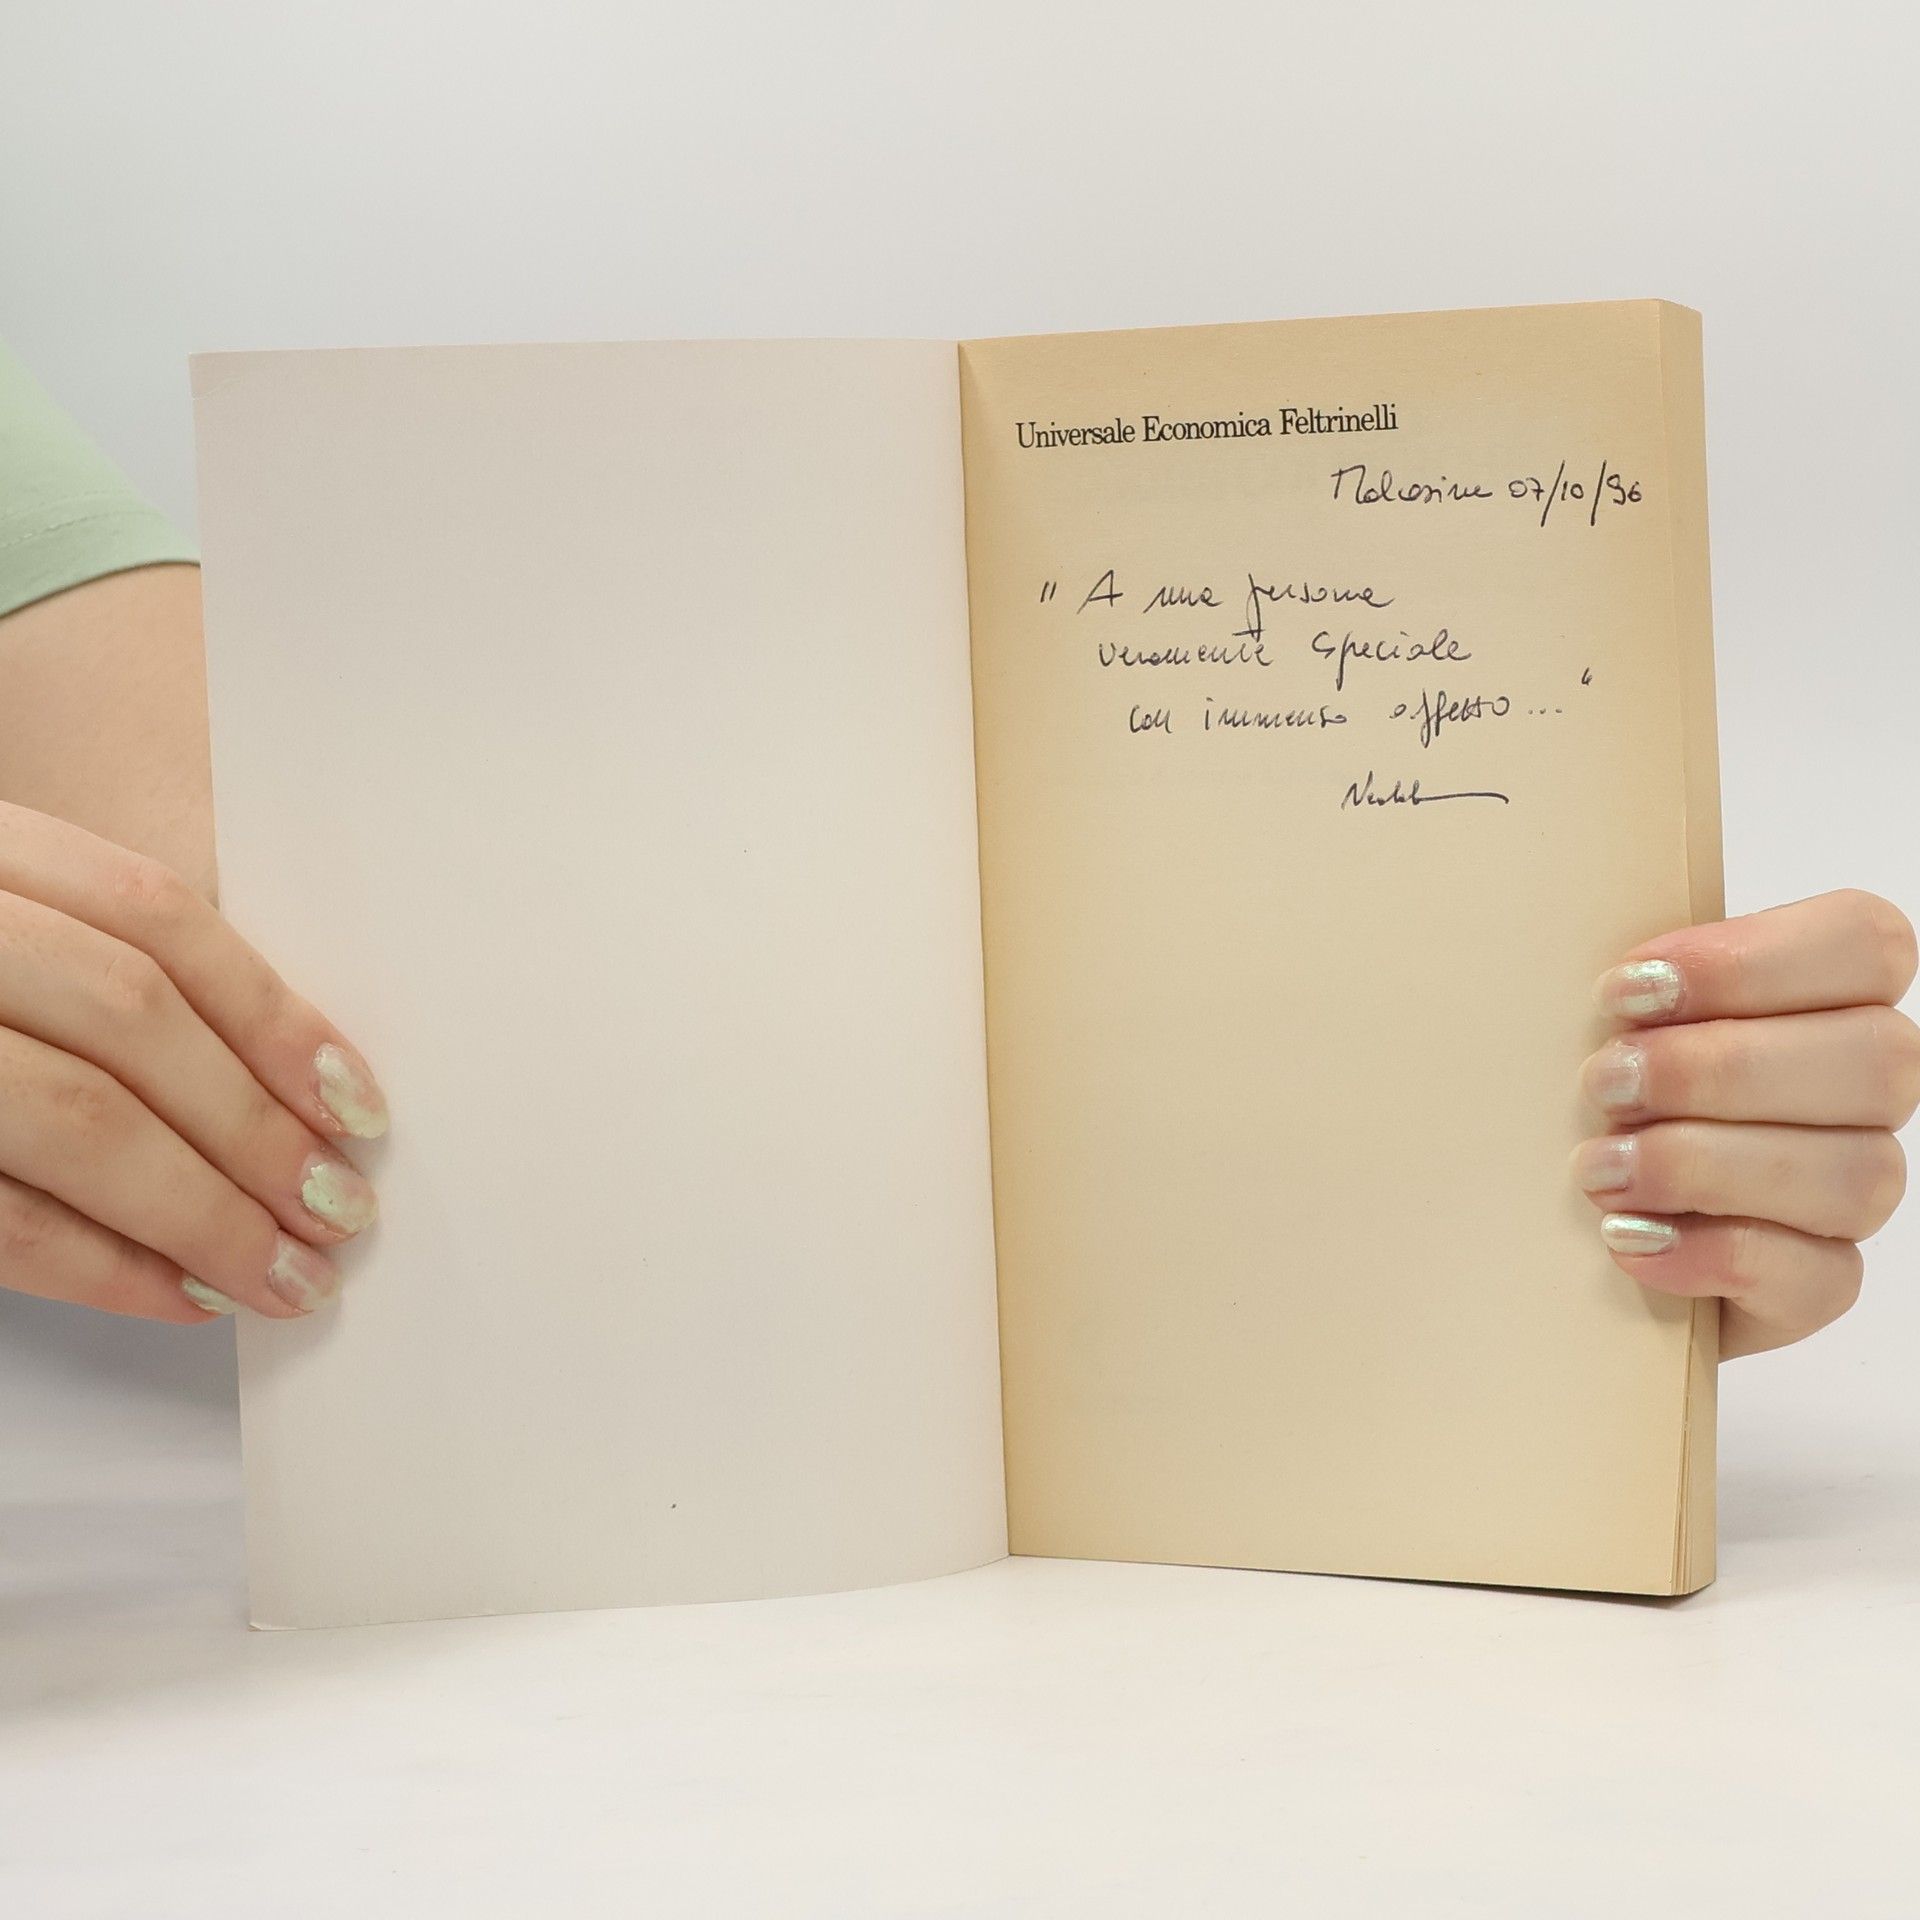 Universale Economica Feltrinelli
Malcesine 07/10/96
" A una persona
veramente speciale
con immenso affetto... "